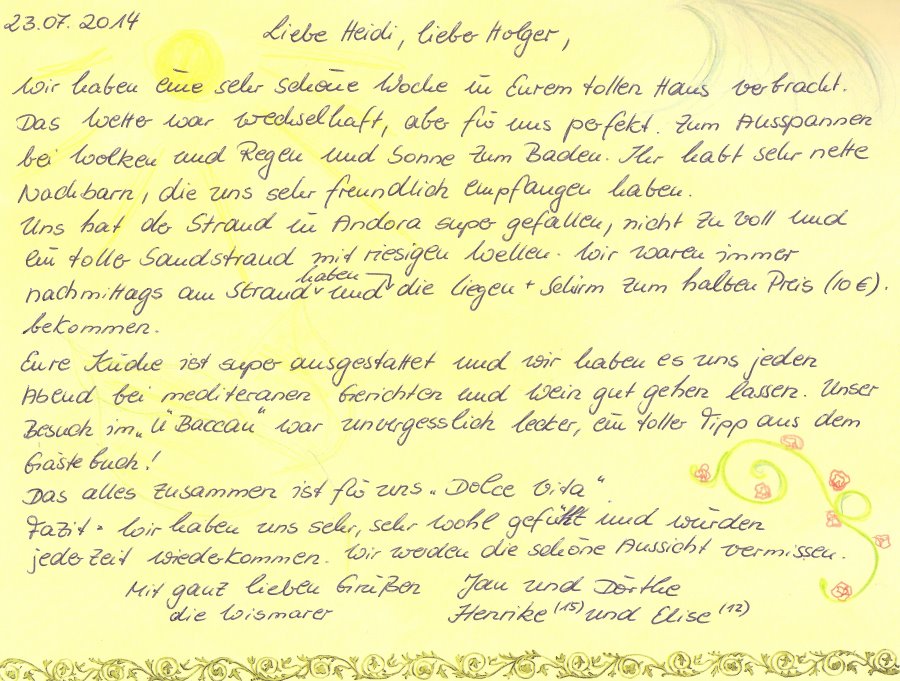 23.07.2014
Liebe Heidi, lieber Holger,
wir haben eine sehr schöne Woche in Eurem tollen Haus verbracht.
Das Wetter war wechselhaft, aber für uns perfekt. Zum Ausspannen
bei Wolken und Regen und Sonne zum Baden. Ihr habt sehr nette
Nachbarn, die uns sehr freundlich empfangen haben.
Uns hat der Strand in Andora super gefallen, nicht zu voll und
ein toller Sandstrand mit riesigen Wellen. Wir waren immer
haben
nachmittags am Strand und die Liegen + Schirm zum halben Preis (10 €).
bekommen.
Eure Küche ist super ausgestattet und wir haben es uns jeden
Abend bei mediteranen Gerichten und Wein gut gehen lassen. Unser
Besuch im „Ü Baccan“ war unvergesslich lecker, ein toller Tipp aus dem
Gästebuch!
Das alles zusammen ist für uns „Dolce Vita“.
Fazit: Wir haben uns sehr, sehr wohl gefühlt und würden
jederzeit wiederkommen. Wir werden die schöne Aussicht vermissen.
Mit ganz lieben Grüßen Jan und Dörthe
die Wismarer Henrike (15) und Elise (12)